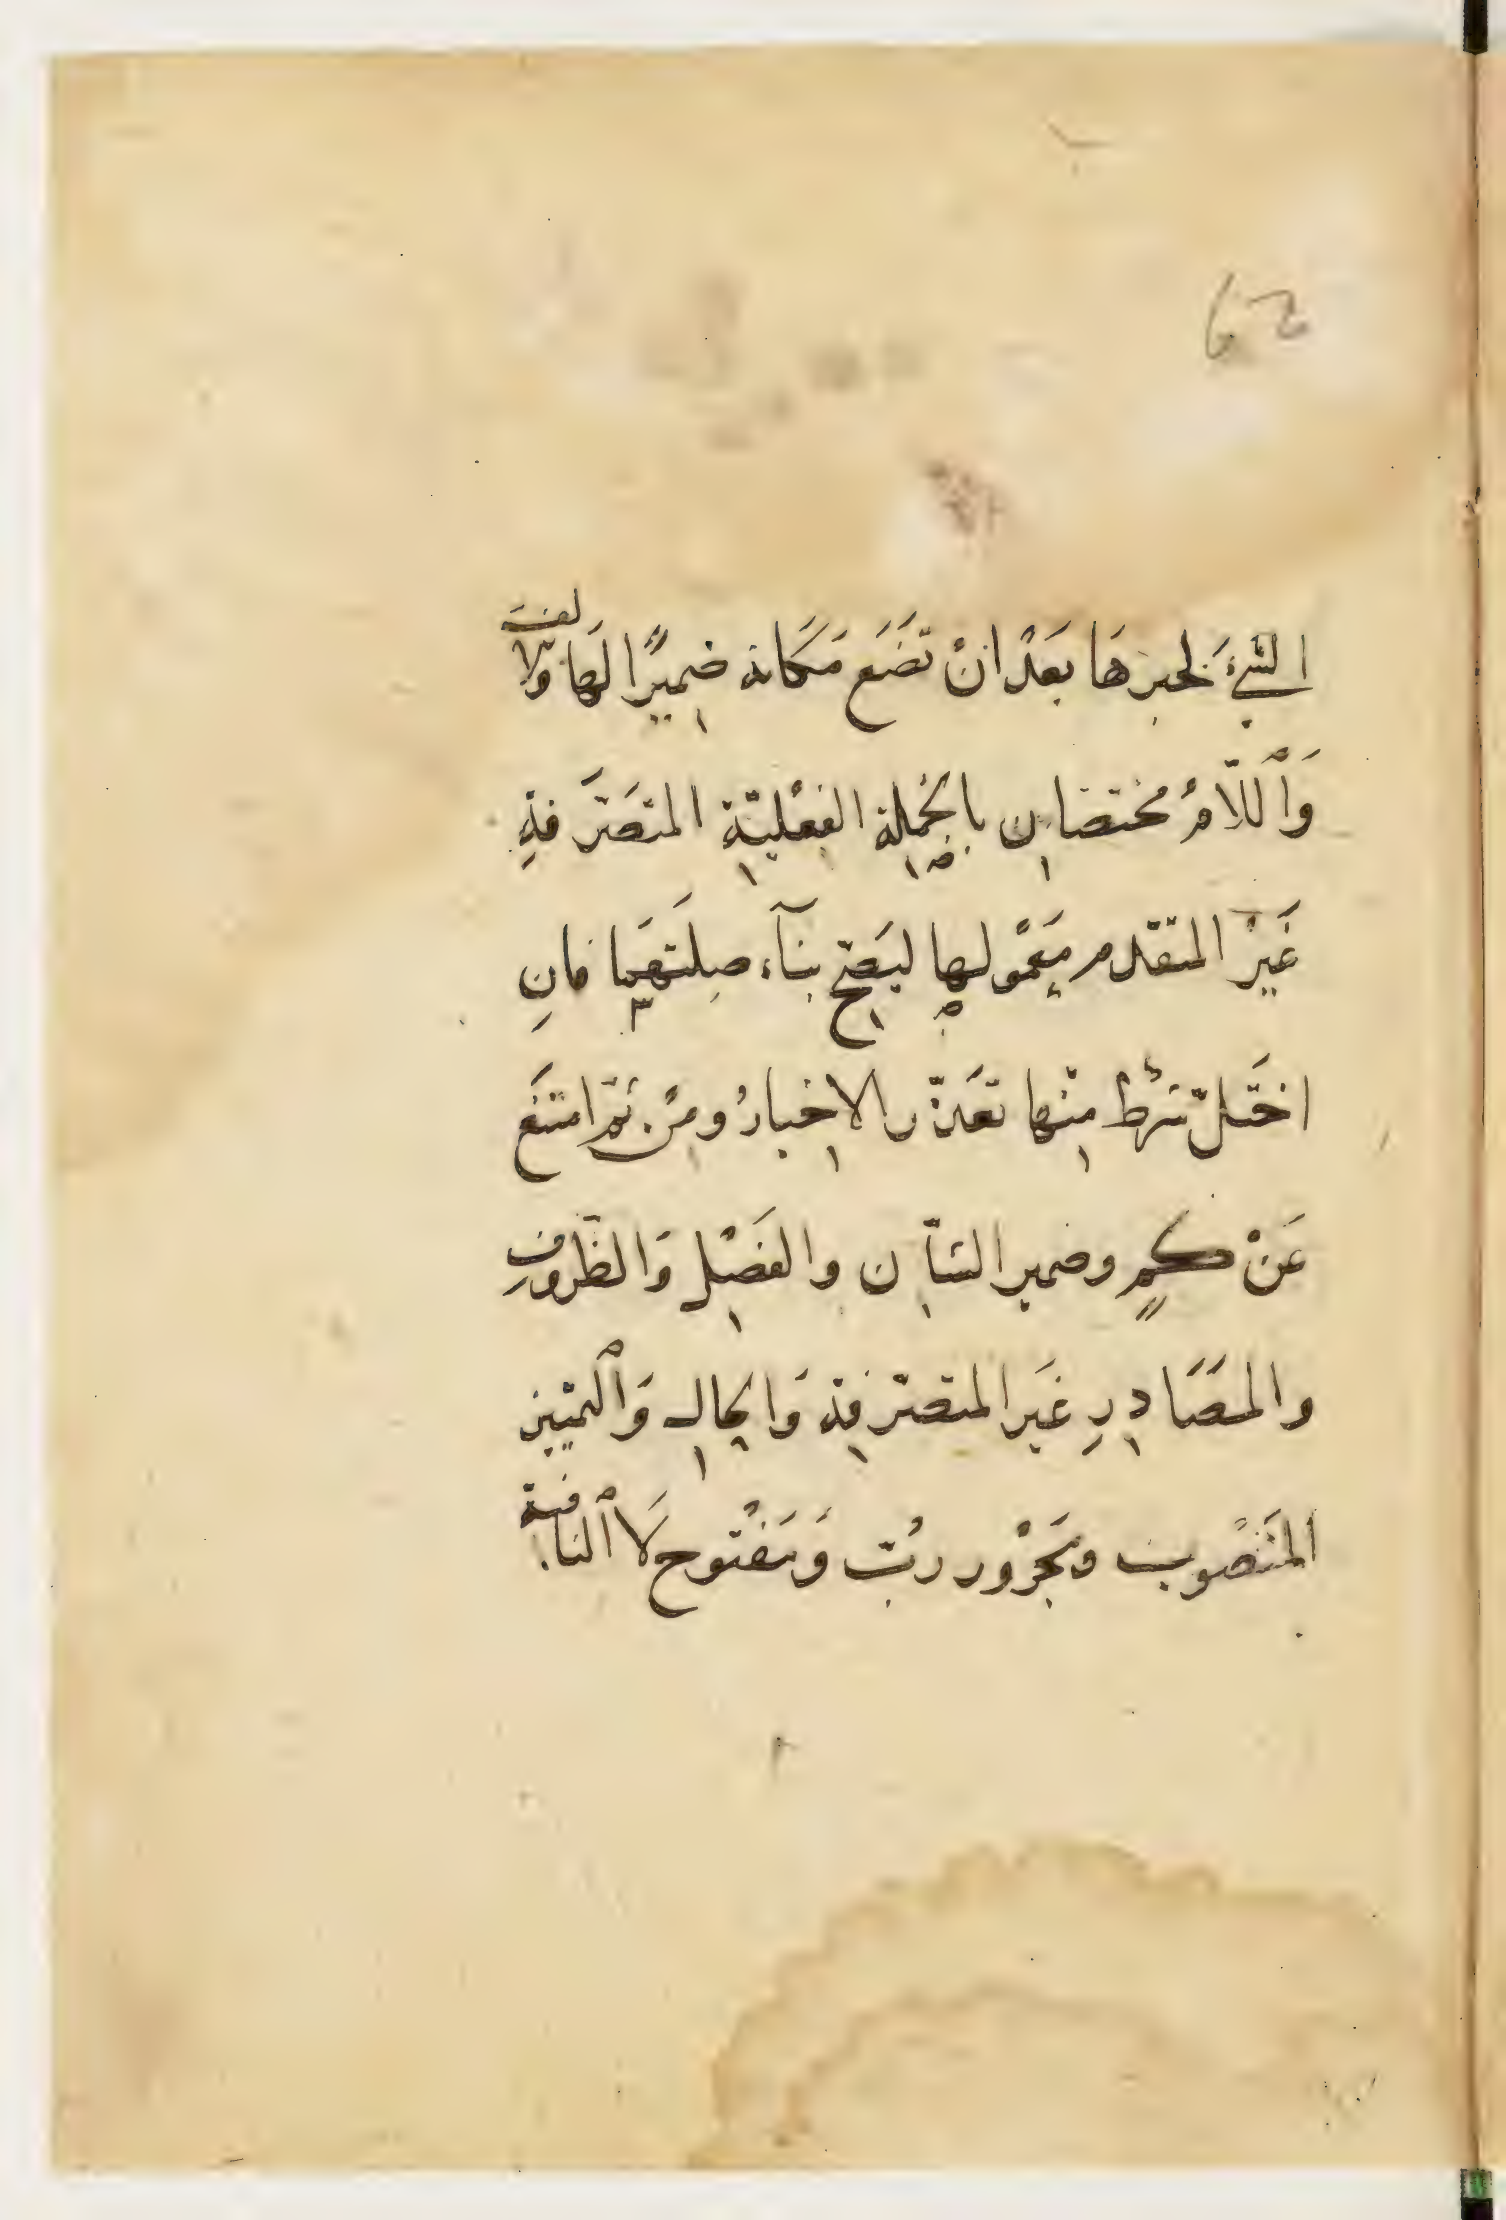 الشيءَ لخبرهَا بَعْدَ انْ تَضَعَ مَكَانه ضميرًا لهَا وَالالفُ
وَاللّامُ مختصّان بالجُملة الفعْليّة المتصَرّفةِ
غَيْر المتقدّم مَعْمُولها ليَصحّ بنآء صِلَتهمَا فانِ
اختَلّ شرْط منْها تعَذّر الاخبارُ ومنْ ثمّ امتنَع
عَنْ كمٍ وضمير الشأن والفَصْل وَالظّروفِ
والمصَادرِ غَير المتصرّفة وَالحال وَالتمييز
المنَصُوب ومَجرْور ربّ وَمَفْتوح لَا النافية